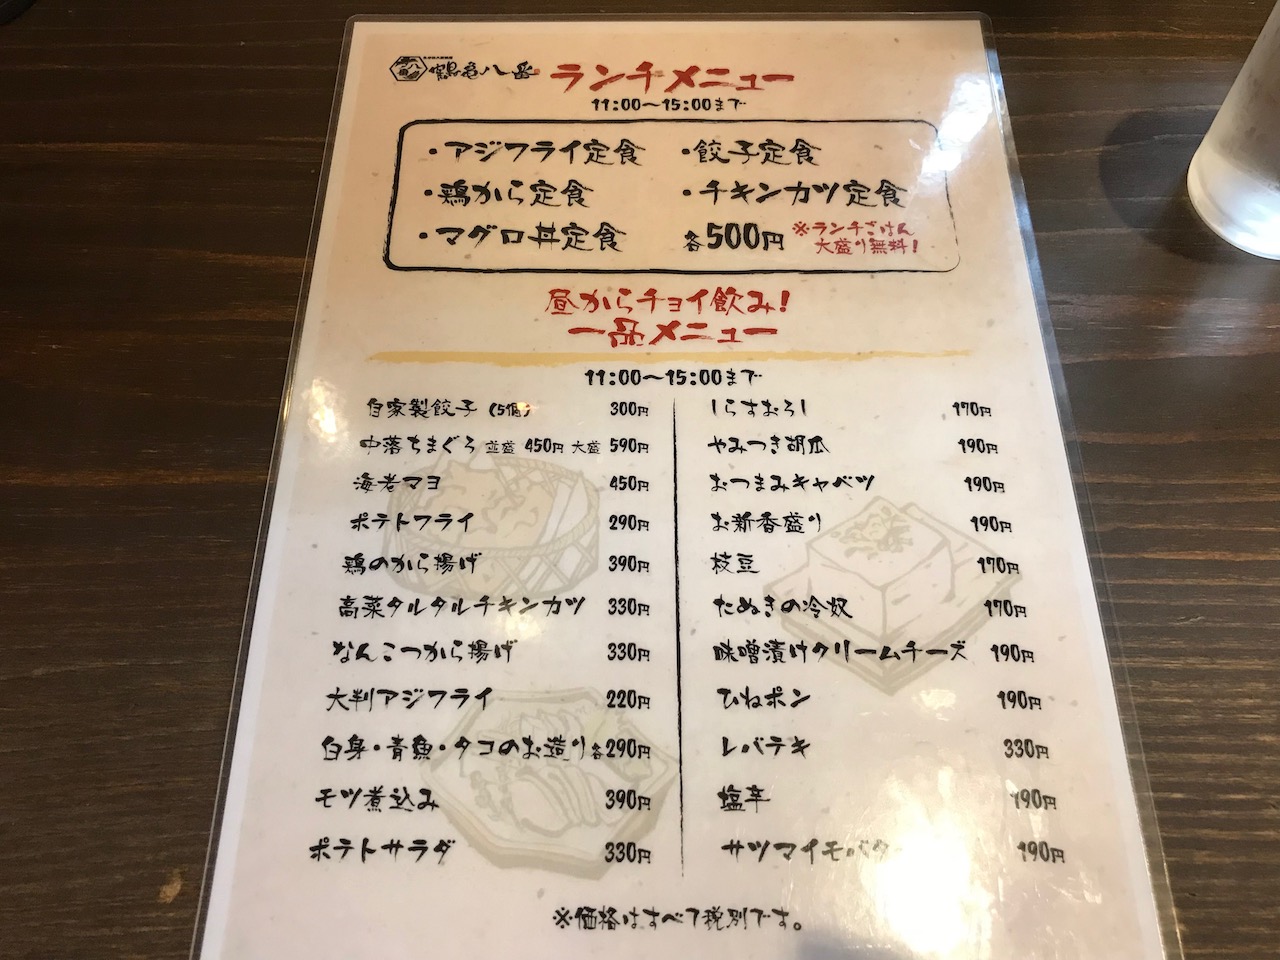 鶴亀八番 ランチメニュー
11:00〜15:00まで
・アジフライ定食 ・餃子定食
・鶏から定食 ・チキンカツ定食
・マグロ丼定食 各500円 ※ランチごはん
大盛り無料!
昼からチョイ飲み!
一品メニュー
11:00〜15:00まで
自家製餃子(5個) 300円
中落ちまぐろ 並盛 450円 大盛 590円
海老マヨ 450円
ポテトフライ 290円
鶏のから揚げ 390円
高菜タルタルチキンカツ 330円
なんこつから揚げ 330円
大判アジフライ 220円
白身・青魚・タコのお造り各290円
モツ煮込み 390円
ポテトサラダ 330円
しらすおろし 170円
やみつき胡瓜 190円
おつまみキャベツ 190円
お新香盛り 190円
枝豆 170円
たぬきの冷奴 170円
味噌漬けクリームチーズ 190円
ひねポン 190円
レバテキ 330円
塩辛 190円
サツマイモバター 190円
※価格はすべて税別です。